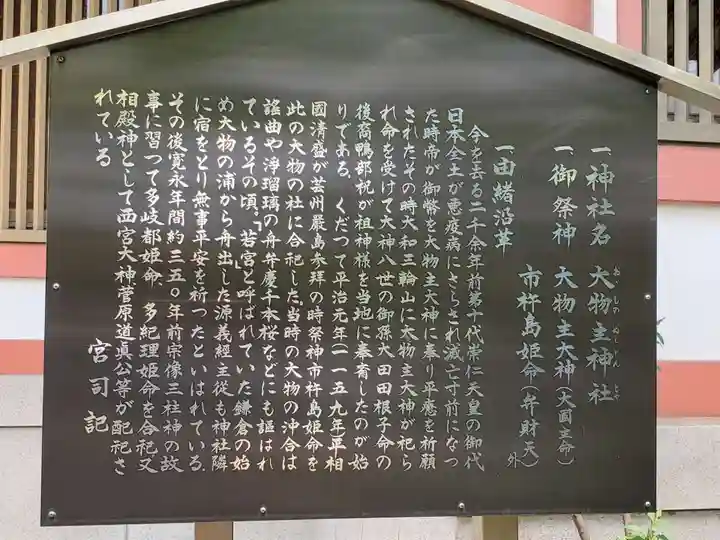 一、神社名 大物主神社
おゝものぬしじんじゃ
一、御祭神 大物主大神（大国主命）
市杵島姫命（弁財天）外
一、由緒沿革
今を去る二千余年前第十代崇仁天皇の御代
日本全土が悪疫病にさらされ滅亡寸前になつ
た時帝が御幣を大物主大神に奉り平癒を祈願
されたその時大和三輪山に大物主大神が祀ら
れ命を受けて大神八世の御孫大田田根子命の
後裔鴨部祝が祖神様を当地に奉斎したのが始
りである。くだつて平治元年（一一五九年平相
國清盛が芸州嚴島参拜の時祭神市杵島姫命を
此の大物の社に合祀した当時の大物の沖合は
謡曲や浄瑠璃の舟弁慶千本桜などにも謳はれ
ているその頃。「若宮」と呼ばれていた鎌倉の始
め大物の浦から舟出した源義經主從も神社隣
に宿をとり無事平安を祈つたといはれている。
その後寛永年間約三五〇年前宗像三柱神の故
事に習つて多岐都姫命、多紀理姫命を合祀又
相殿神として西宮大神菅原道眞公等が配祀さ
れている
宮司記